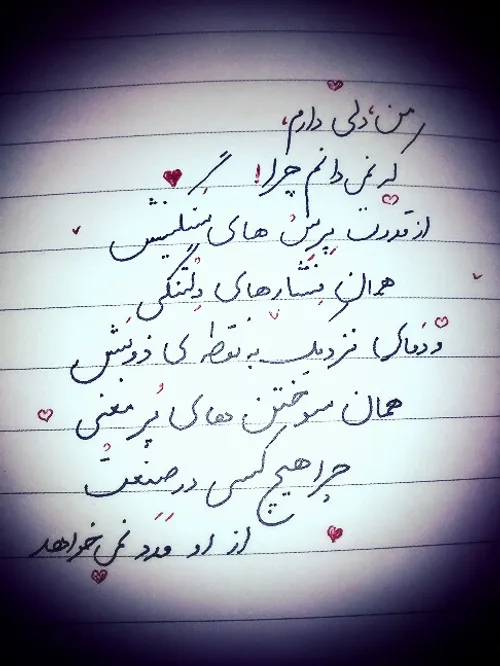 من، دلی دارم،
که نمی دانم چرا!
از قدرت پرس های سنگینش
همان فشارهای دلتنگی
و دمای نزدیک به نقطه ی ذوبش
همان سوختن های پر معنی
چرا هیچ کسی در صنعت
از او مدد نمی خواهد